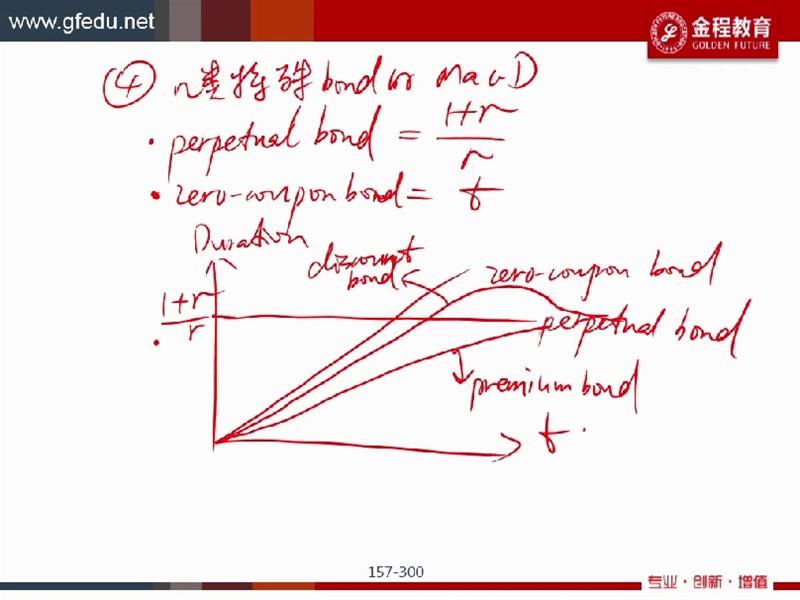 www.gfedu.net
金程教育
GOLDEN FUTURE
④ 几类特殊bond的MacD
· perpetual bond = 1+r / r
· zero-coupon bond = t
Duration
discount bond
zero-coupon bond
1+r / r
perpetual bond
premium bond
t
157-300
专业·创新·增值